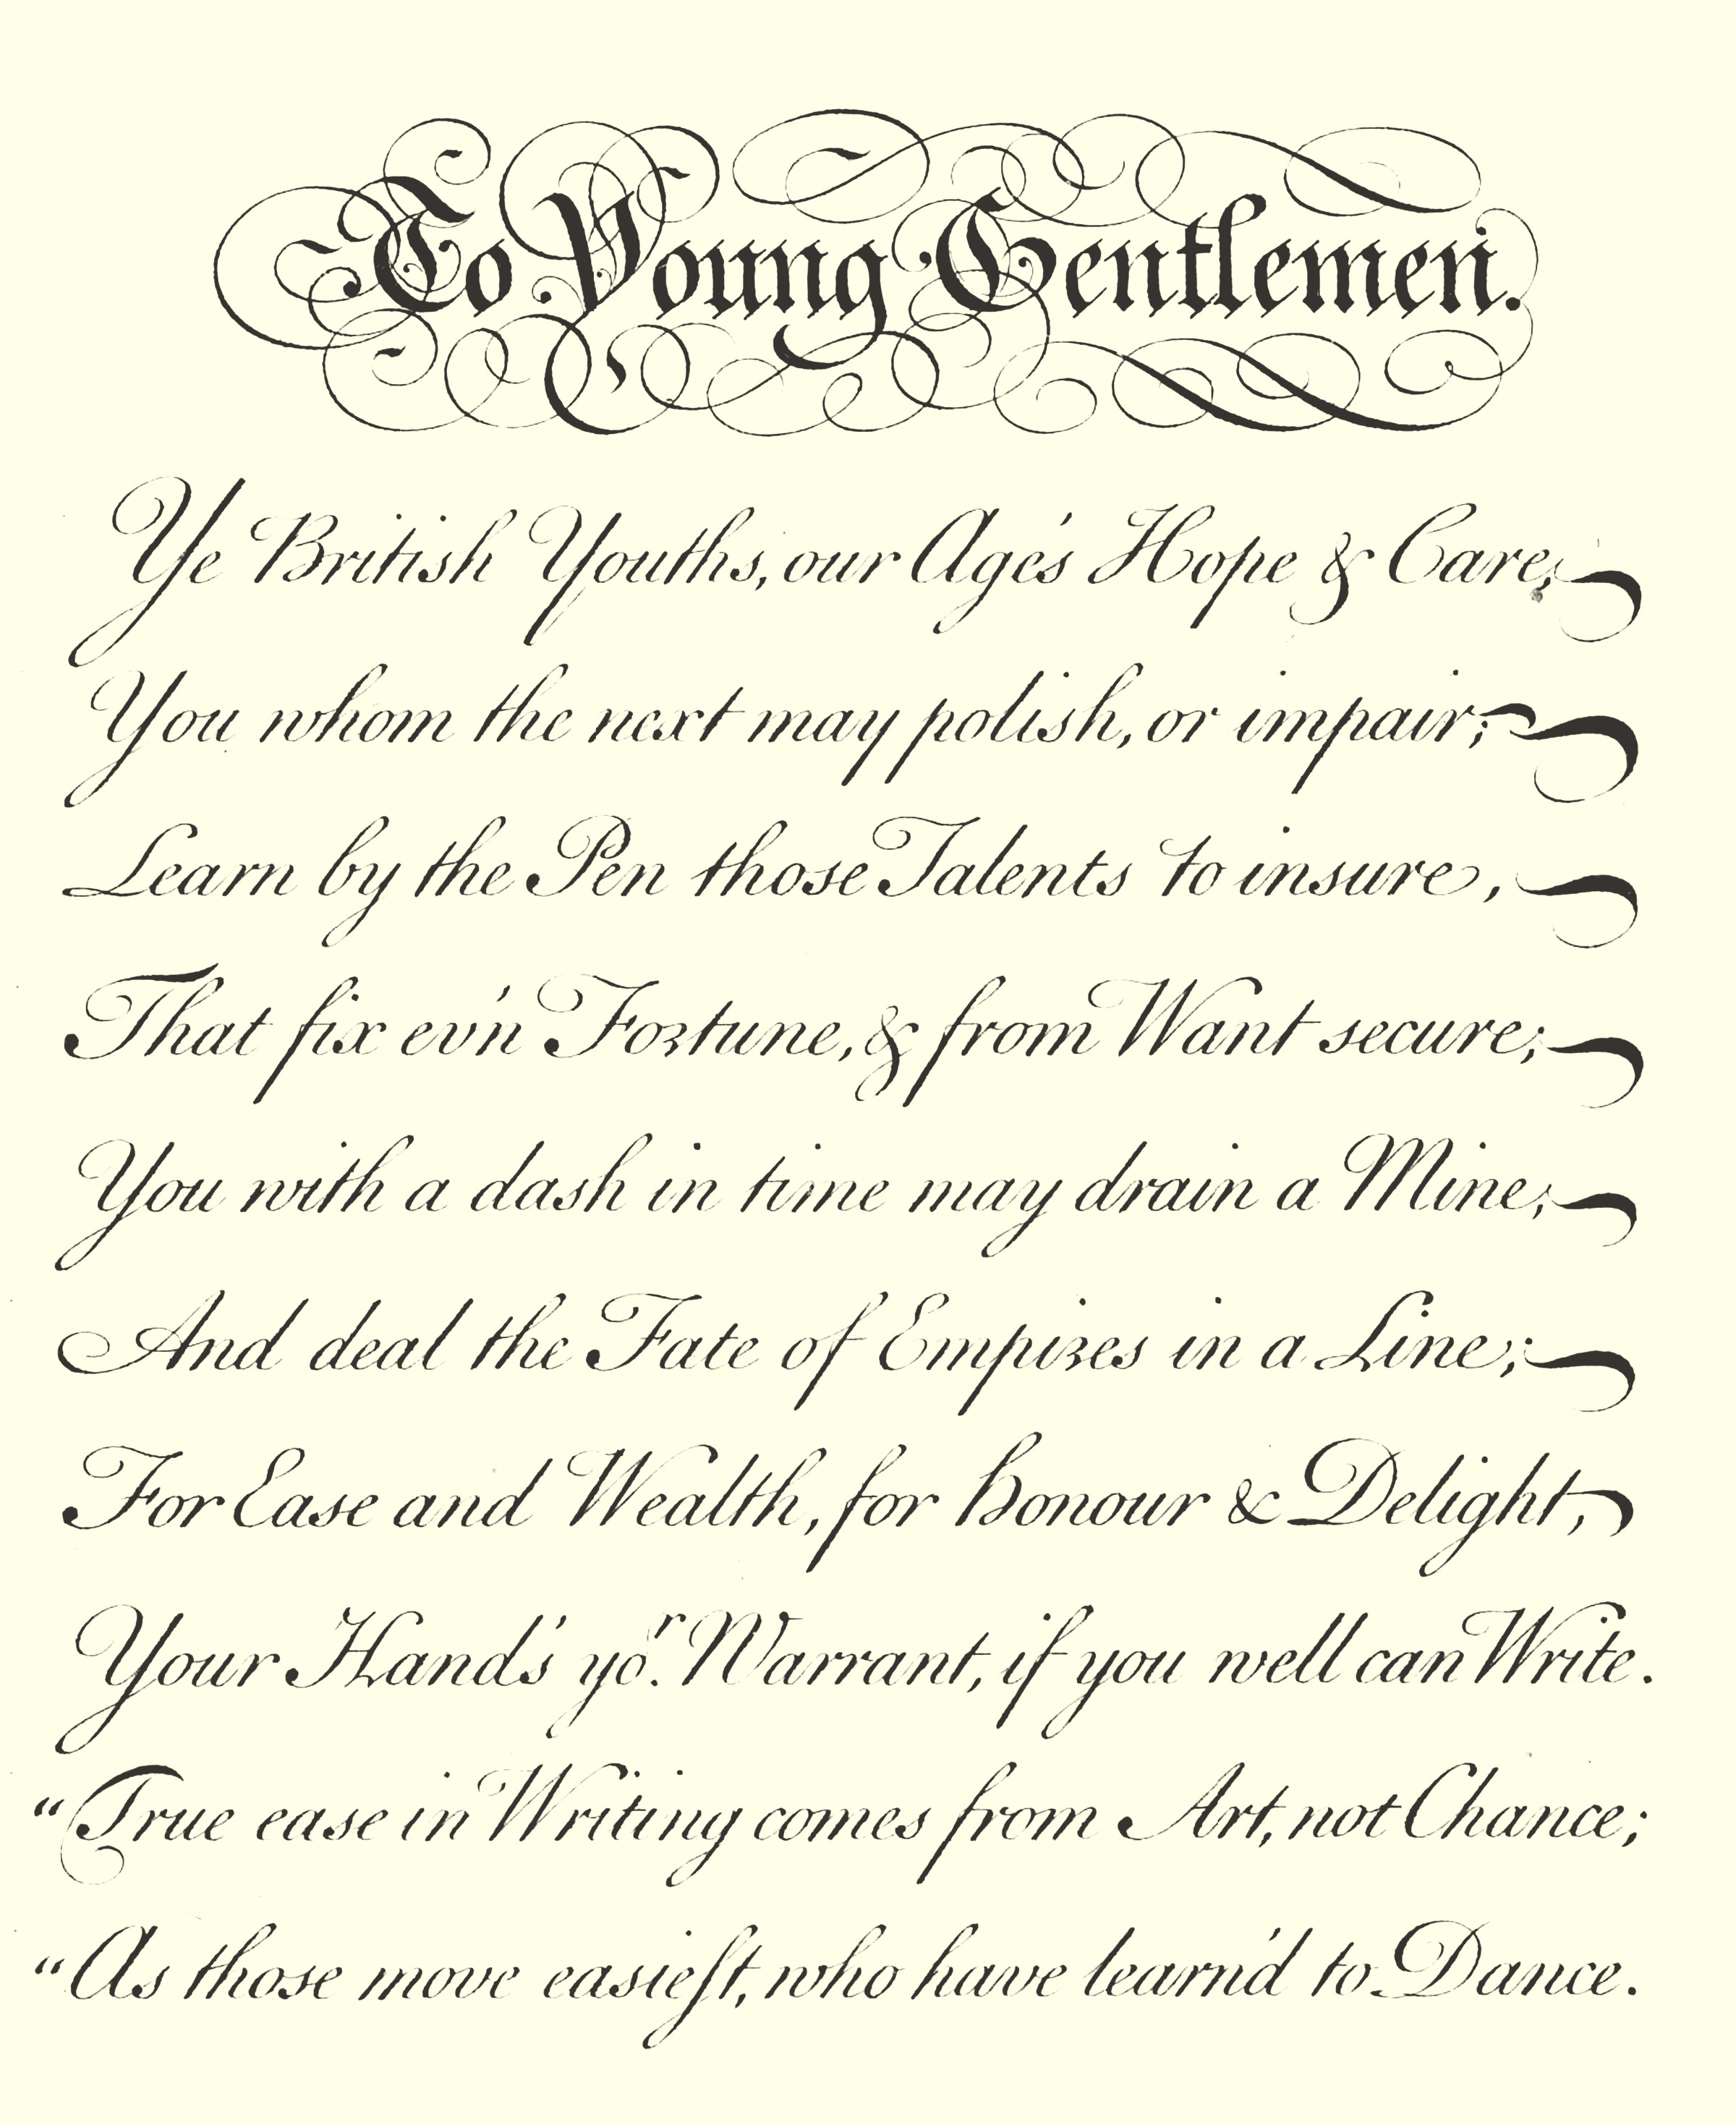 To Young Gentlemen.
Ye British Youths, our Age's Hope & Care;
You whom the next may polish, or impair;
Learn by the Pen those Talents to insure,
That fix ev'n Fortune, & from Want secure;
You with a dash in time may drain a Mine;
And deal the Fate of Empires in a Line;
For Ease and Wealth, for Honour & Delight,
Your Hand's yo.ʳ Warrant, if you well can Write.
"True ease in Writing comes from Art, not Chance;
"As those move easieſt, who have learn'd to Dance.